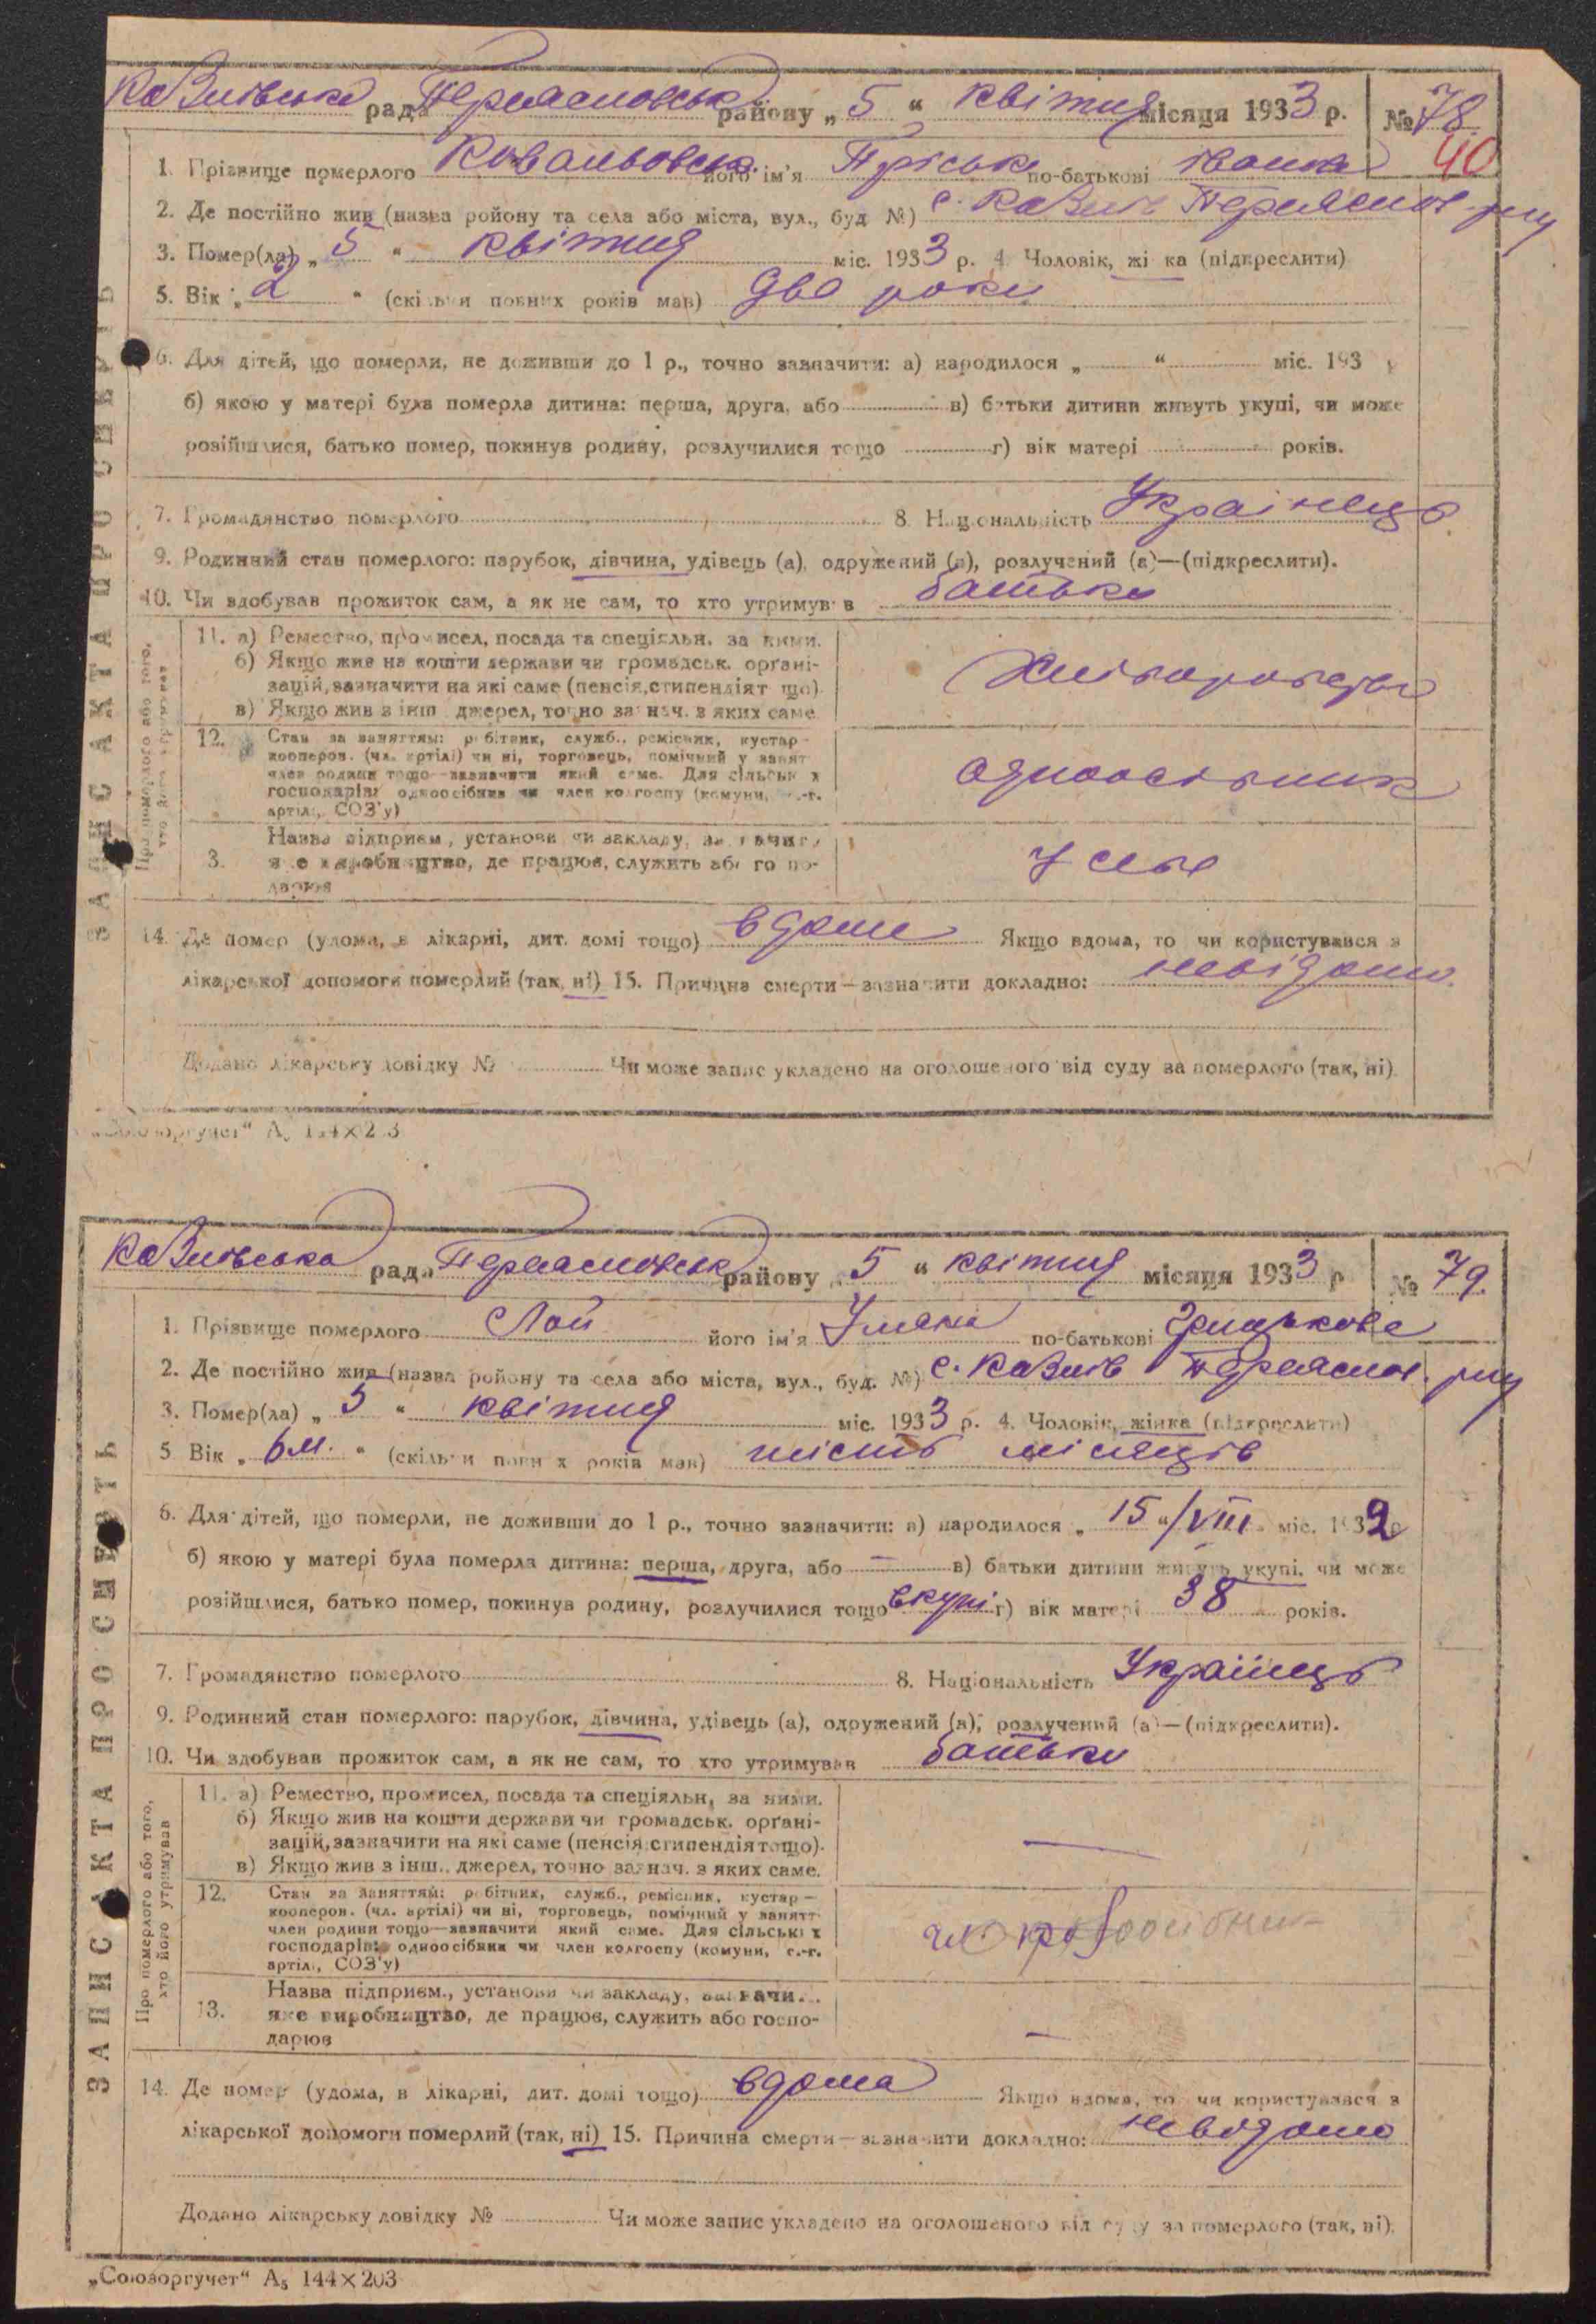 рада Переяславськ району „ 5 “ квітня місяця 1933 р. № 78
40
1. Прізвище померлого Ковальовськ. його ім'я Пріська по-батькові івання
2. Де постійно жив (назва ройону та села або міста, вул., буд №) с.
3. Помер(ла) „ 5 “ квітня міс. 1933 р. 4. Чоловік, жі ка (підкреслити)
5. Вік „ 2 “ (скільки повних років мав) два роки
6. Для дітей, що померли, не доживши до 1 р., точно зазначити: а) народилося „ “ міс. 193 р
б) якою у матері була померла дитина: перша, друга, або в) батьки дитини живуть укупі, чи може
розійшлися, батько помер, покинув родину, розлучилися тощо г) вік матері років.
7. Громадянство померлого 8. Національність Українець
9. Родинний стан померлого: парубок, дівчина, удівець (а), одружений (а), розлучений (а)—(підкреслити).
10. Чи здобував прожиток сам, а як не сам, то хто утримував батьки
ЗАПИС АКТА ПРО СМЕРТЬ
Про померлого або того,
хто його утримував
11. а) Ремество, промисел, посада та спеціяльн. за ними.
б) Якщо жив на кошти держави чи громадськ. орґані-
зацій, зазначити на які саме (пенсія, стипендіят що).
в) Якщо жив з інш. джерел, точно зазнач. з яких саме
Хліборобство
12. Стан за заняттям: робітник, служб., ремісник, кустар—
кооперов. (чл. артілі) чи ні, торговець, помічний у занят.
член родини тощо—зазначити який саме. Для сільськ х
господарів: одноосібник чи член колгоспу (комуни, с.-г.
артілі, СОЗ'у)
одноосібник
3. Назва підприєм., установи чи закладу, зазначит.
яке виробництво, де працює, служить або госпо-
дарює
У селі
14. Де помер (удома, в лікарні, дит. домі тощо) вдома Якщо вдома, то чи користувався з
лікарської допомоги померлий (так, ні) 15. Причина смерти—зазначити докладно: невідомо.
Додано лікарську довідку № Чи може запис укладено на оголошеного від суду за померлого (так, ні).
„Союзоргучет“ А5 144×203
рада Переяславськ району „ 5 “ квітня місяця 1933 р № 79.
1. Прізвище померлого Лой його ім'я Уляна по-батькові Грицькова
2. Де постійно жив (назва ройону та села або міста, вул., буд. №) с.
3. Помер(ла) „ 5 “ квітня міс. 1933 р. 4. Чоловік, жінка (підкреслити)
5 Вік „ 6 м. “ (скільки повн х років мав) шість місяців
6. Для дітей, що померли, не доживши до 1 р., точно зазначити: а) народилося „ 15 “/VIII міс. 1932 р
б) якою у матері була померла дитина: перша, друга, або — в) батьки дитини живуть укупі, чи може
розійшлися, батько помер, покинув родину, розлучилися тощо вкупі г) вік матері 38 років.
7. Громадянство померлого 8. Національність Українець
9. Родинний стан померлого: парубок, дівчина, удівець (а), одружений (а), розлучений (а)—(підкреслити).
10. Чи здобував прожиток сам, а як не сам, то хто утримував батьки
ЗАПИС АКТА ПРО СМЕРТЬ
Про померлого або того,
хто його утримував
11. а) Ремество, промисел, посада та спеціяльн. за ними.
б) Якщо жив на кошти держави чи громадськ. орґані-
зацій, зазначити на які саме (пенсія, стипендія тощо).
в) Якщо жив з інш. джерел, точно зазнач. з яких саме.
—
12. Стан за заняттям: робітник, служб., ремісник, кустар—
кооперов. (чл. артілі) чи ні, торговець, помічний у занятт.
член родини тощо—зазначити який саме. Для сільськ х
господарів: одноосібник чи член колгоспу (комуни, с.-г.
артілі, СОЗ'у)
13. Назва підприєм., установи чи закладу, зазначи...
яке виробництво, де працює, служить або госпо-
дарює
—
14. Де помер (удома, в лікарні, дит. домі тощо) вдома Якщо вдома, то чи користувався з
лікарської допомоги померлий (так, ні) 15. Причина смерти—зазначити докладно: невідомо
Додано лікарську довідку № Чи може запис укладено на оголошеного від суду за померлого (так, ні).
„Союзоргучет“ А5 144×203